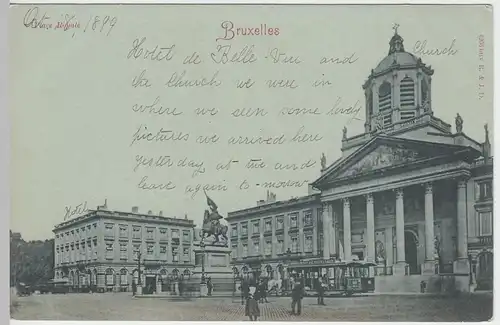 Oct 1899
Place Royale
Bruxelles
Hotel de Belle-Vue and
Church
the Church we were in
where we seen some lovely
pictures we arrived here
yesterday at and
leave again to-morrow
Hotel